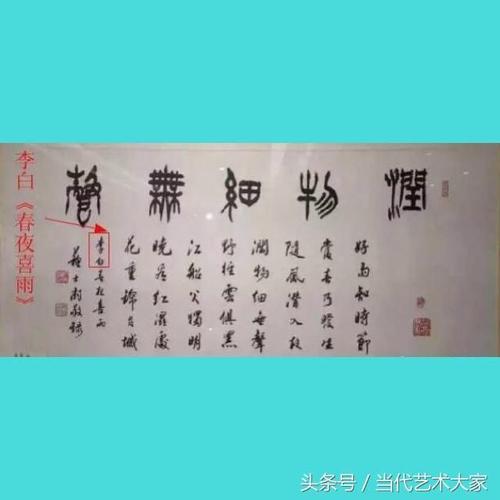 潤物細無聲
好雨知時節
當春乃發生
隨風潛入夜
潤物細無聲
野徑雲俱黑
江船火獨明
曉看紅濕處
花重錦官城
李白春夜喜雨
蘇士澍敬錄
李白《春夜喜雨》
头条号／当代艺术大家